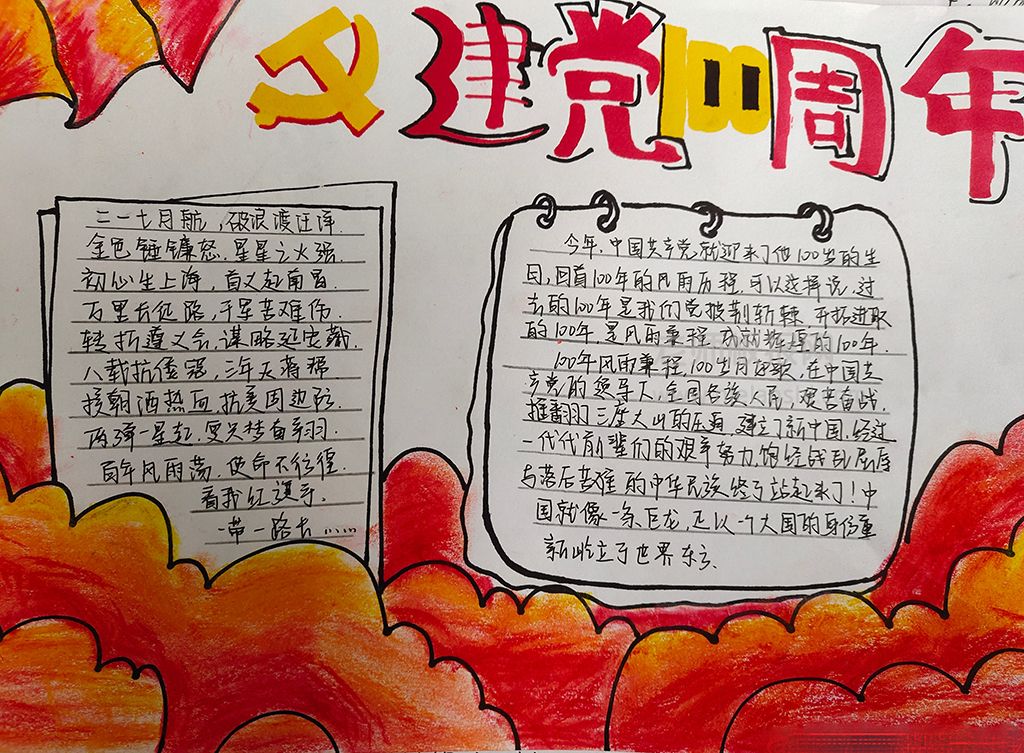 建党100周年
二一七月航,破浪渡汪洋.
金色锤镰怒.星星之火强.
初心生上海,首义赴南昌.
万里长征路,千军苦难伤.
转折遵义会,谋略延安藏.
八载抗倭寇,三年天蒋
援朝洒热血,抗美固边防.
两弹一星起,
百年风雨荡.使命不往徨.
看我红旗手.
一带一路长……
今年,中国共产党就迎来了他100岁的生
日,回首100年的风雨历程,可以这样说,过
去的100年是我们党披荆斩棘 开拓进取
的100年.是风雨兼程,成就辉煌的100年.
100年风雨兼程,100岁月如歌.在中国共
产党的领导人,全国各族人民,艰苦奋战.
推翻了三座大山的压迫 建立了新中国.经过
一代代前辈们的艰辛努力,饱经战乱屈辱
与落后苦难的中华民族终于站起来了!中
国就像一条巨龙,正以一个大国的身份重
新屹立于世界东方.